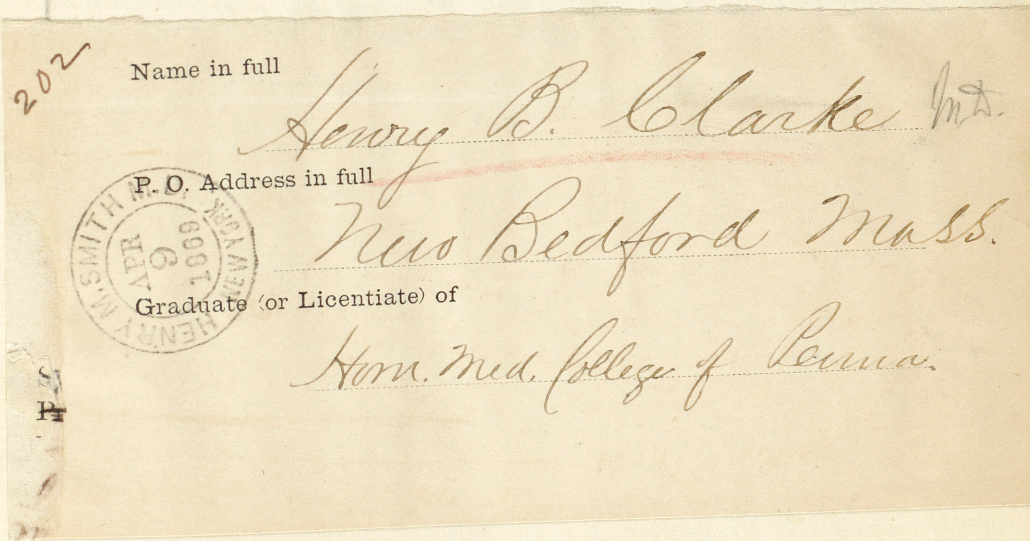 202
Name in full
Henry B. Clarke M.D.
P. O. Address in full
New Bedford Mass.
HENRY M. SMITH M.D. NEW YORK
APR
9
Graduate (or Licentiate) of
Hom. Med. College of Penna.